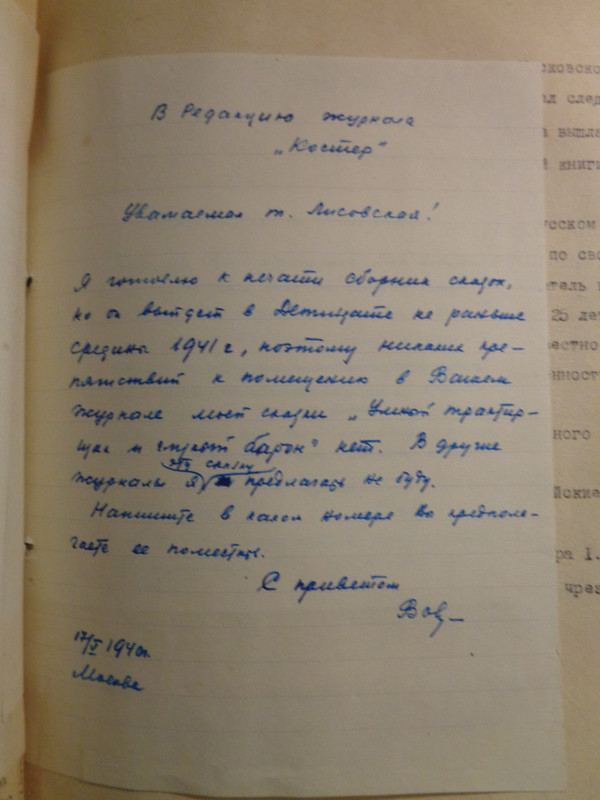 В Редакцию журнала
„Костер"
Уважаемая т. Лисовская!
Я готовлю к печати сборник сказок,
но он выйдет в Детиздате не раньше
средины 1941 г, поэтому никаких пре-
пятствий к помещению в Вашем
журнале моей сказки „Умный трактир-
щик и глупый барон" нет. В другие
эту сказку
журналы я предлагать не буду.
Напишите в каком номере Вы предпола-
гаете ее поместить.
С приветом
17/V 1940г.
Москва
сковско
ал след
а вышла
й книги
усском
по сво
атель
25 лет
вестно
енност
ного
йские
ра I.
чрез